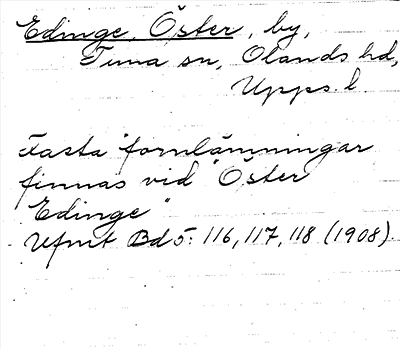 Edinge, Öster, by,
Tuna sn, Olands hd,
Upps. l.
Fasta fornlämningar
finnas vid "Öster
Edinge"
Ufmt Bd 5: 116, 117, 118 (1908).